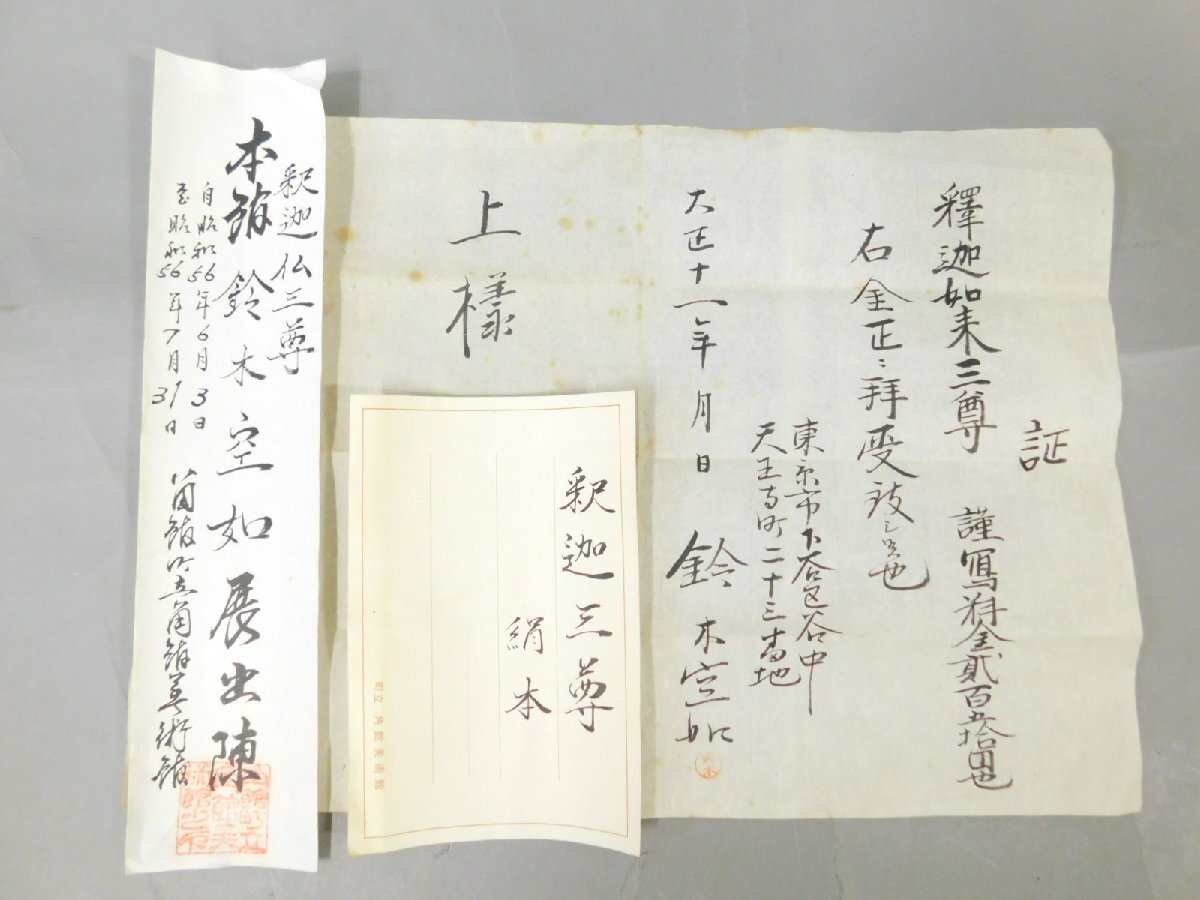 証
釋迦如来三尊　謹寫料金貳百五拾円也
右金正ニ拝受致シ候也
東京市下谷区谷中
天王寺町二十三番地
大正十一年 月 日　鈴木空如
上様
釈迦三尊
絹本
町立 角館美術館
釈迦仏三尊
本館 鈴木空如展出陳
自昭和56年6月3日
至昭和56年7月31日
角館町立角館美術館